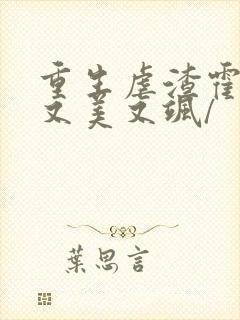 重生虐渣霍
又美又飒/
葉思言